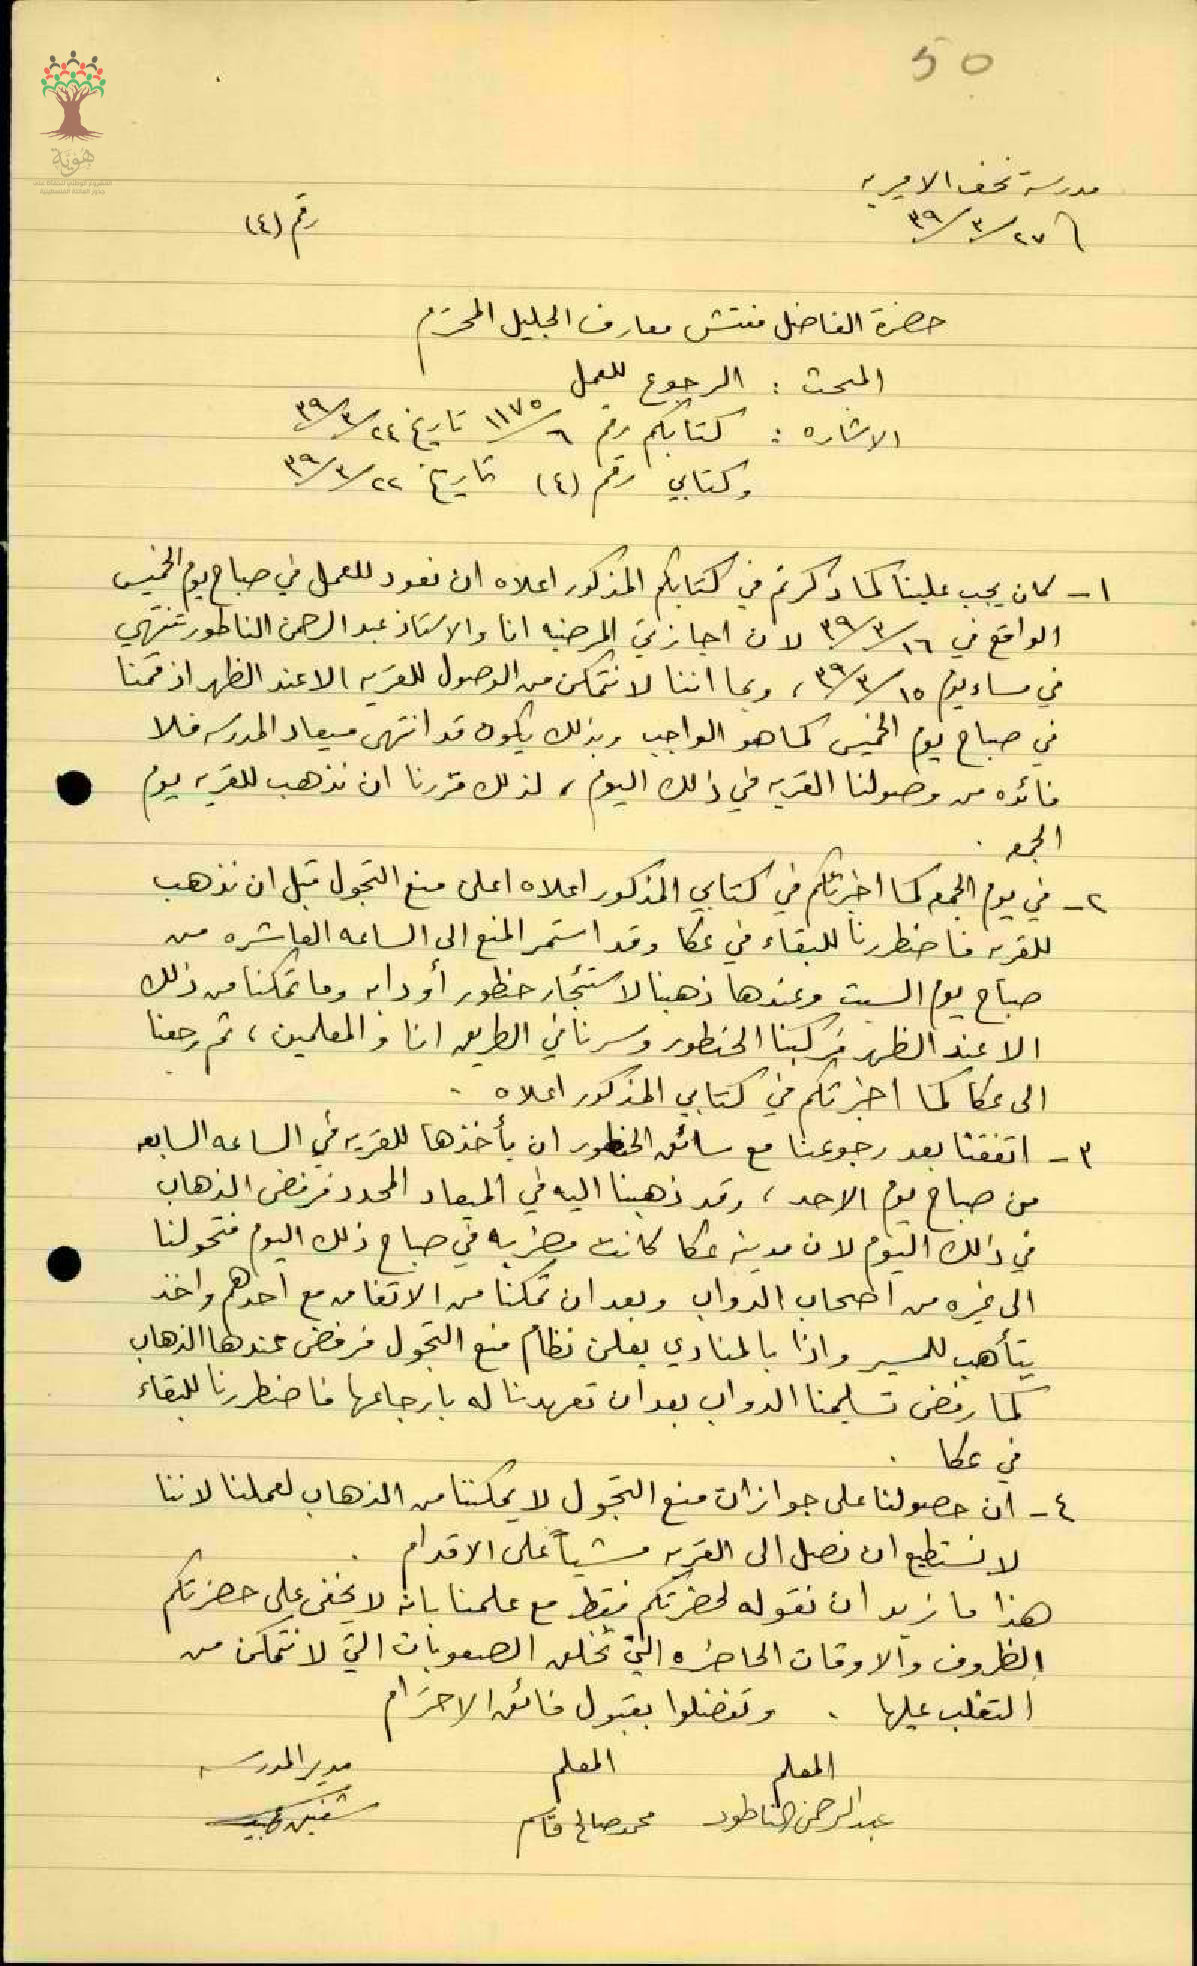 50
هوية
مدرسة نحف الاميريه
٢٧/٣/٣٩
رقم (٤)
حضرة الفاضل مفتش معارف الجليل المحترم
المبحث : الرجوع للعمل
الاشاره : كتابكم رقم ٦/١١٧٥ تاريخ ٢٤/٣/٣٩
وكتابي رقم (٤) تاريخ ٢٢/٣/٣٩
١- كان يجب علينا كما ذكرتم في كتابكم المذكور اعلاه ان نعود للعمل في صباح يوم الخميس
الواقع في ١٦/٣/٣٩ لان اجازتي المرضيه انا والاستاذ عبد الرحمن الناطور تنتهي
في مساء يوم ١٥/٣/٣٩ ، وبما اننا لا نتمكن من الوصول للقريه الا عند الظهر اذ قمنا
في صباح يوم الخميس كما هو الواجب وبذلك يكون قد انتهى ميعاد المدرسه فلا
فائده من وصولنا القريه في ذلك اليوم ، لذلك قررنا ان نذهب للقريه يوم
الجمعه .
٢- في يوم الجمعه كما اخبرتكم في كتابي المذكور اعلاه اعلن منع التجول قبل ان نذهب
للقريه فاضطررنا للبقاء في عكا وقد استمر المنع الى الساعه العاشره من
صباح يوم السبت وعندها ذهبنا لاستئجار حنطور أو دابه وما تمكنا من ذلك
الا عند الظهر فركبنا الحنطور وسرنا في الطريق انا والمعلمين ، ثم رجعنا
الى عكا كما اخبرتكم في كتابي المذكور اعلاه .
٣- اتفقنا بعد رجوعنا مع سائق الحنطور ان يأخذها للقريه في الساعه السابعه
من صباح يوم الاحد ، وقد ذهبنا اليه في الميعاد المحدد فرفض الذهاب
في ذلك اليوم لان مدينة عكا كانت مضربه في صباح ذلك اليوم فتحولنا
الى غيره من اصحاب الدواب وبعد ان تمكنا من الاتفاق مع احدهم واخذ
يتأهب للمسير واذا بالمنادي يعلن نظام منع التجول فرفض عندها الذهاب
كما رفض تسليمنا الدواب بعد ان تعهدنا له بارجاعها فاضطررنا للبقاء
في عكا .
٤- ان حصولنا على جوازات منع التجول لا يمكننا من الذهاب لعملنا لاننا
لا نستطيع ان نصل الى القريه مشياً على الاقدام .
هذا ما نريد ان نقوله لحضرتكم فقط مع علمنا بانه لا يخفى على حضرتكم
الظروف والاوقات الحاضره التي تخلق الصعوبات التي لا نتمكن من
التغلب عليها . وتفضلوا بقبول فائق الاحترام
المعلم المعلم مدير المدرسه
عبد الرحمن الناطور محمد صالح قاسم